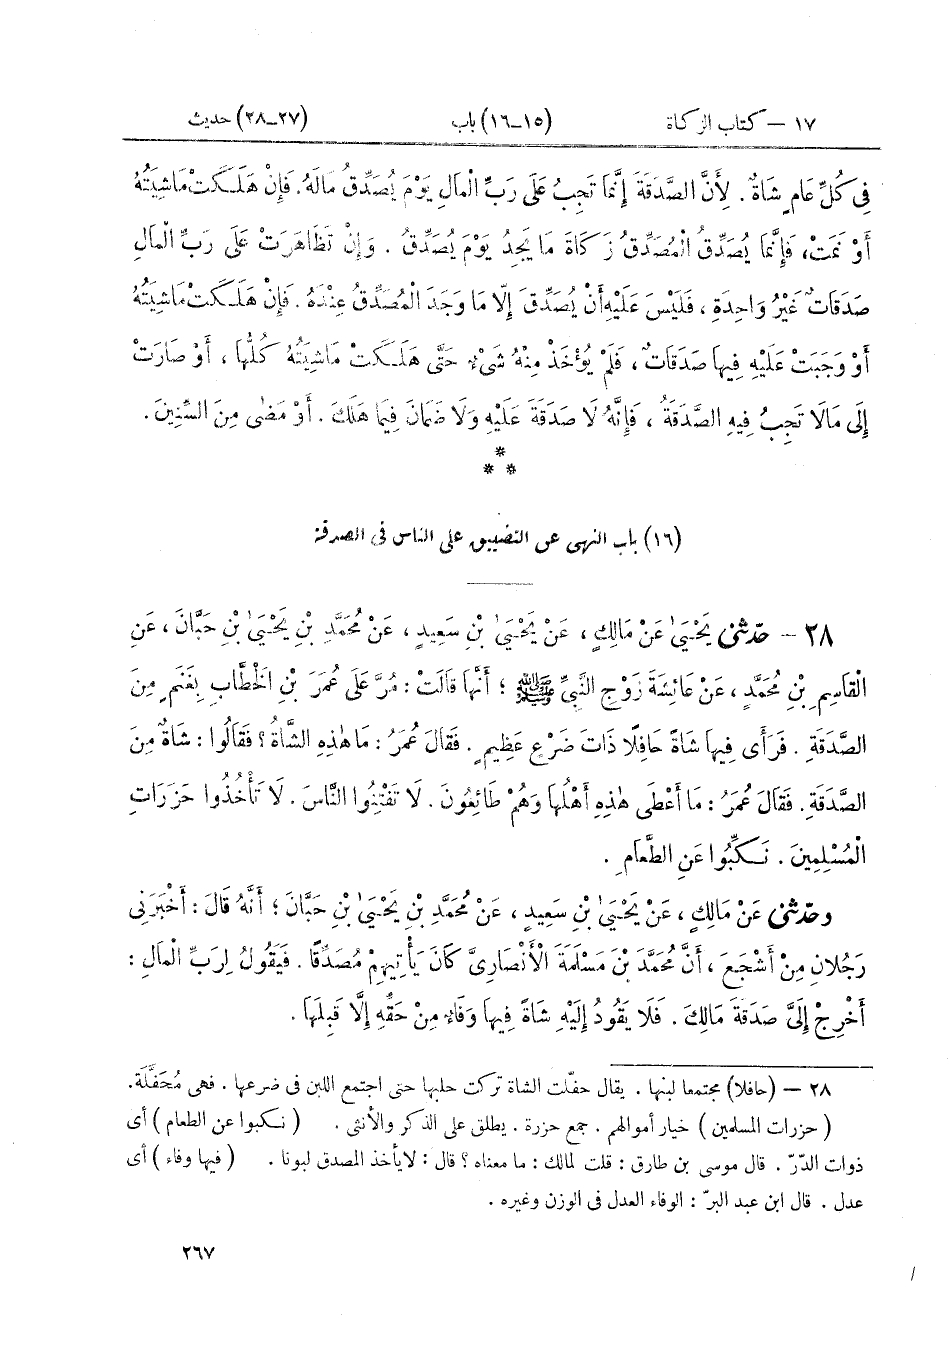 ١٧ – كتاب الزكاة (١٥_١٦) باب (٢٧_٢٨) حديث
فِى كُلِّ عَامٍ شَاةٌ . لِأَنَّ الصَّدَقَةَ إِنَّمَا تَجِبُ عَلَى رَبِّ الْمَالِ يَوْمَ يُصَدِّقُ مَالَهُ . فَإِنْ هَلَكَتْ مَاشِيَتُهُ
أَوْ نَمَتْ، فَإِنَّمَا يُصَدِّقُ الْمُصَدِّقُ زَكَاةَ مَا يَجِدُ يَوْمَ يُصَدِّقُ . وَإِنْ تَظَاهَرَتْ عَلَى رَبِّ الْمَالِ
صَدَقَاتٌ غَيْرُ وَاحِدَةٍ ، فَلَيْسَ عَلَيْهِ أَنْ يُصَدِّقَ إِلَّا مَا وَجَدَ الْمُصَدِّقُ عِنْدَهُ . فَإِنْ هَلَكَتْ مَاشِيَتُهُ
أَوْ وَجَبَتْ عَلَيْهِ فِيهَا صَدَقَاتٌ ، فَلَمْ يُؤْخَذْ مِنْهُ شَيْءٌ حَتَّى هَلَكَتْ مَاشِيَتُهُ كُلُّهَا ، أَوْ صَارَتْ
إِلَى مَالَا تَجِبُ فِيهِ الصَّدَقَةُ ، فَإِنَّهُ لَا صَدَقَةَ عَلَيْهِ وَلَا ضَمَانَ فِيمَا هَلَكَ . أَوْ مَضَى مِنَ السِّنِينَ .
*
* *
(١٦) باب النهى عن التضييق على الناس فى الصدقة
٢٨ – حَدَّثَنِى يَحْيَىٰ عَنْ مَالِكٍ ، عَنْ يَحْيَىٰ بْنِ سَعِيدٍ ، عَنْ مُحَمَّدِ بْنِ يَحْيَىٰ بْنِ حَبَّانَ ، عَنِ
الْقَاسِمِ بْنِ مُحَمَّدٍ ، عَنْ عَائِشَةَ زَوْجِ النَّبِىِّ ﷺ ؛ أَنَّهَا قَالَتْ : مُرَّ عَلَى عُمَرَ بْنِ الْخَطَّابِ بِغَنَمٍ مِنَ
الصَّدَقَةِ . فَرَأَى فِيهَا شَاةً حَافِلًا ذَاتَ ضَرْعٍ عَظِيمٍ . فَقَالَ عُمَرُ : مَا هٰذِهِ الشَّاةُ ؟ فَقَالُوا : شَاةٌ مِنَ
الصَّدَقَةِ . فَقَالَ عُمَرُ : مَا أَعْطَى هٰذِهِ أَهْلُهَا وَهُمْ طَائِعُونَ . لَا تَفْتِنُوا النَّاسَ . لَا تَأْخُذُوا حَزَرَاتِ
الْمُسْلِمِينَ . نَكِّبُوا عَنِ الطَّعَامِ .
وحَدَّثَنِى عَنْ مَالِكٍ ، عَنْ يَحْيَىٰ بْنِ سَعِيدٍ ، عَنْ مُحَمَّدِ بْنِ يَحْيَىٰ بْنِ حَبَّانَ ؛ أَنَّهُ قَالَ : أَخْبَرَنِى
رَجُلَانِ مِنْ أَشْجَعَ ، أَنَّ مُحَمَّدَ بْنَ مَسْلَمَةَ الْأَنْصَارِىَّ كَانَ يَأْتِيهِمْ مُصَدِّقًا . فَيَقُولُ لِرَبِّ الْمَالِ :
أَخْرِجْ إِلَىَّ صَدَقَةَ مَالِكَ . فَلَا يَقُودُ إِلَيْهِ شَاةً فِيهَا وَفَاءٌ مِنْ حَقِّهِ إِلَّا قَبِلَهَا .
٢٨ – (حافلا) مجتمعا لبنها . يقال حفّلت الشاة تركت حلبها حتى اجتمع اللبن فى ضرعها . فهى مُحَفَّلَة.
( حزرات المسلمين ) خيار أموالهم . جمع حزرة . يطلق على الذكر والأنثى . ( نكبوا عن الطعام ) أى
ذوات الدّرّ . قال موسى بن طارق : قلت لمالك : ما معناه ؟ قال : لا يأخذ المصدق لبونا . ( فيها وفاء ) أى
عدل . قال ابن عبد البرّ : الوفاء العدل فى الوزن وغيره .
٢٦٧